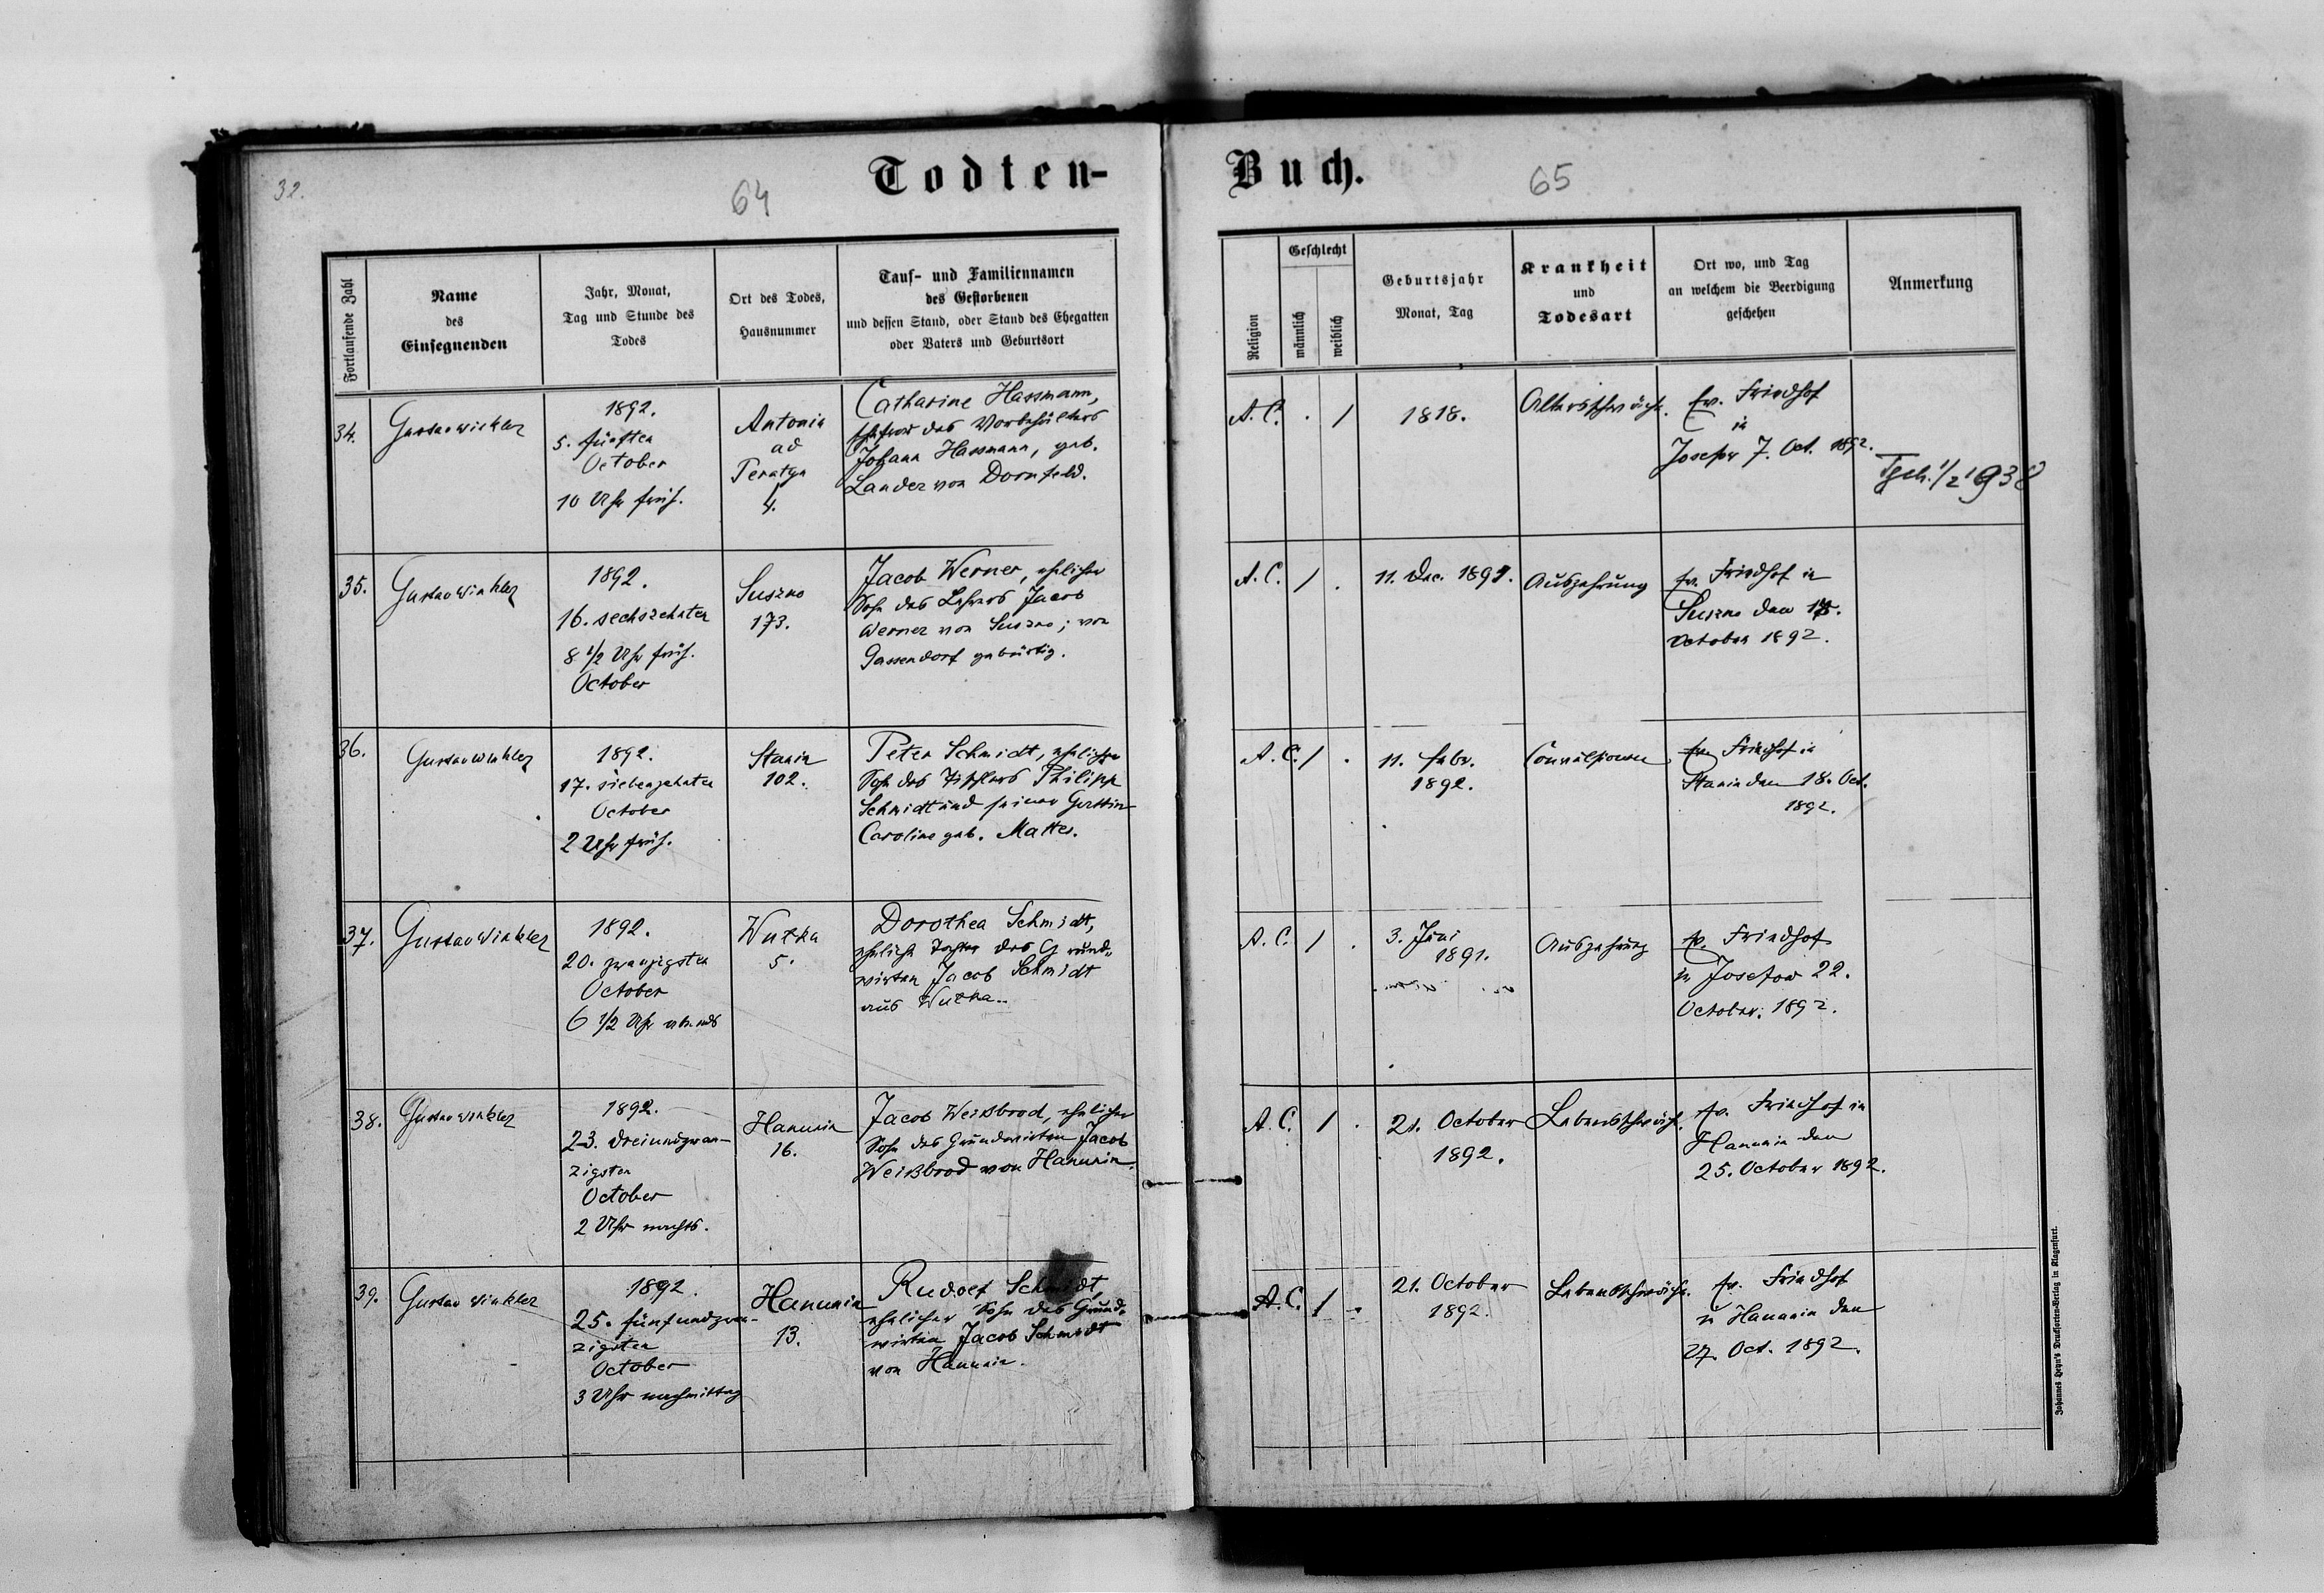 32.
64
Todten-
Fortlaufende Zahl
Name
des
Einsegnenden
Jahr, Monat,
Tag und Stunde des
Todes
Ort des Todes,
Hausnummer
Tauf- und Familiennamen
des Gestorbenen
und dessen Stand, oder Stand des Ehegatten
oder Vaters und Geburtsort
34.
Gustav Winkler
1892.
5. fünften
October
10 Uhr früh.
Antonin
ad
Peratyn
4.
Catharine Hassmann,
des Vorbehälters
Johann Hassmann, geb.
Lander von Dornfeld.
35.
Gustav Winkler
1892.
16. sechszehnten
8 1/2 Uhr früh.
October
Suszno
173.
Jacob Werner, ehelicher
Sohn des Lehrers Jacob
Werner von Suszno; von
Gassendorf gebürtig.
36.
Gustav Winkler
1892.
17. siebenzehnten
October
2 Uhr früh.
Stanin
102.
Peter Schmidt, ehelicher
Sohn des Tischlers Philipp
Schmidt und seiner Gattin
Caroline geb. Mattes.
37.
Gustav Winkler
1892.
20. zwanzigsten
October
6 1/2 Uhr abends
Wutka
5.
Dorothea Schmidt,
eheliche Tochter des Grund-
wirten Jacob Schmidt
aus Wutka.
38.
Gustav Winkler
1892.
23. dreiundzwan-
zigsten
October
2 Uhr nachts.
Hanunin
16.
Jacob Weißbrod, ehelicher
Sohn des Grundwirten Jacob
Weißbrod von Hanunin.
39.
Gustav Winkler
1892.
25. fünfundzwan-
zigsten
October
3 Uhr nachmittag
Hanunin
13.
Rudolf Schmidt,
ehelicher Sohn des Grund-
wirten Jacob Schmidt
von Hanunin.
Buch.
65
Religion
Geschlecht
männlich
weiblich
Geburtsjahr
Monat, Tag
Krankheit
und
Todesart
Ort wo, und Tag
an welchem die Beerdigung
geschehen
Anmerkung
A. C. . /
1818.
Altersschwäche.
Ev. Friedhof
in
Josefow 7. Oct. 1892.
1/2 1938
A. C. / .
11. Dec. 1891.
Auszehrung
Ev. Friedhof in
Suszno den
October 1892.
A. C. / .
11. Febr.
1892.
Convulsionen
Ev. Friedhof in
Stanin den 18. Oct.
1892.
A. C. / .
3. Juni
1891.
Auszehrung
Ev. Friedhof
in Josefow 22.
October. 1892.
A. C. / .
21. October
1892.
Lebensschwäche.
Ev. Friedhof in
Hanunin den
25. October 1892.
A. C. / .
21. October
1892.
Lebensschwäche.
Ev. Friedhof
in Hanunin den
27. Oct. 1892.
Johannes Heyn's Drucksorten-Verlag in Klagenfurt.